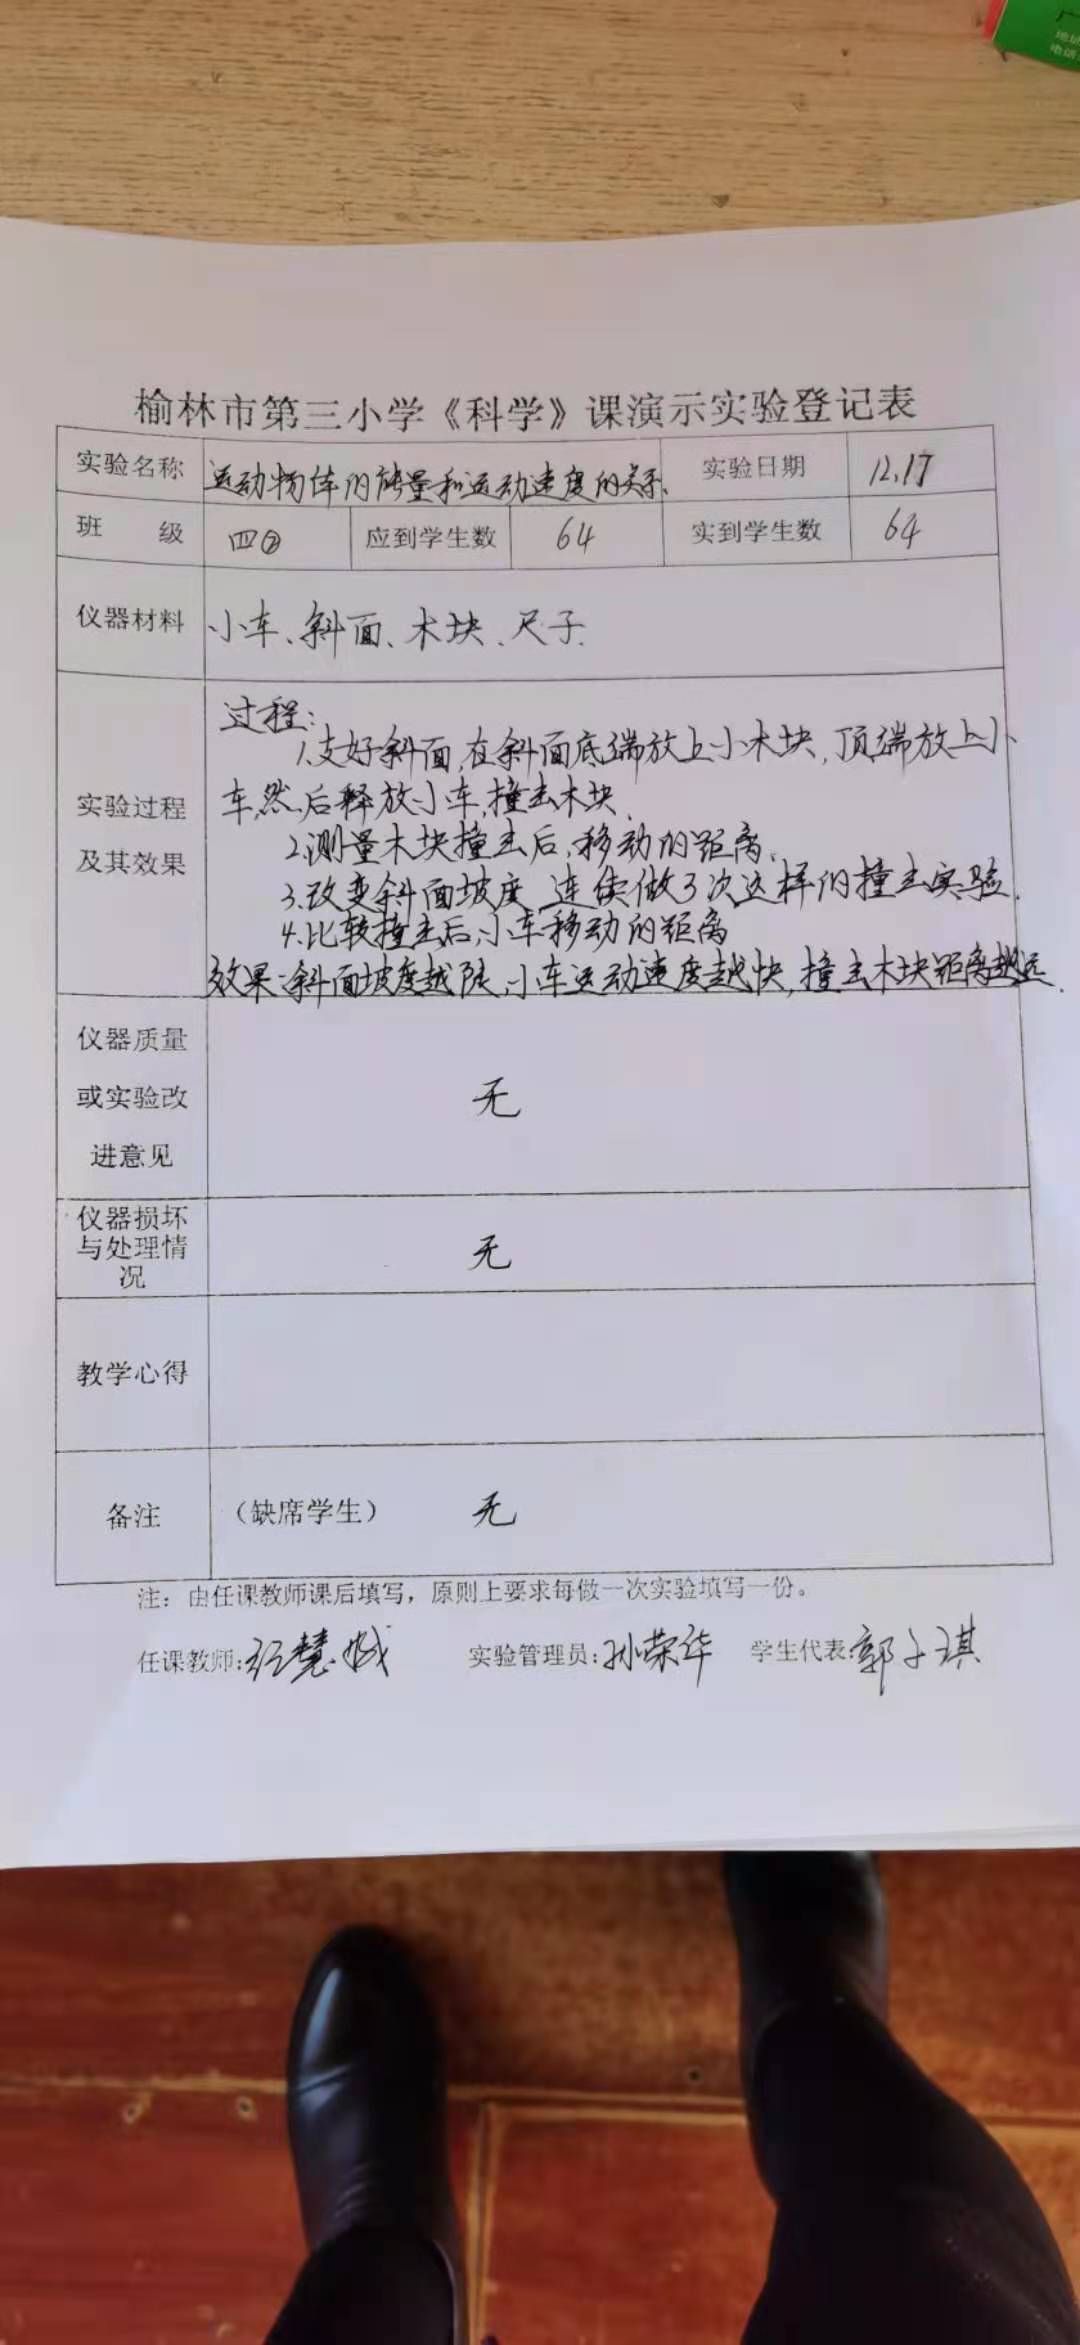 广
地址
电话
榆林市第三小学《科学》课演示实验登记表
实验名称 运动物体的能量和运动速度的关系. 实验日期 12.17
班 级 四② 应到学生数 64 实到学生数 64
仪器材料 小车、斜面、木块、尺子.
实验过程
及其效果
过程:
1.支好斜面,在斜面底端放上小木块,顶端放上小
车,然后释放小车,撞击木块.
2.测量木块撞击后,移动的距离.
3.改变斜面坡度,连续做3次这样的撞击实验.
4.比较撞击后,小车移动的距离
效果:斜面坡度越陡,小车运动速度越快,撞击木块距离越远.
仪器质量
或实验改
进意见
无
仪器损坏
与处理情
况
无
教学心得
备注 (缺席学生) 无
注：由任课教师课后填写，原则上要求每做一次实验填写一份。
任课教师: 实验管理员:孙荣华 学生代表:郭子琪